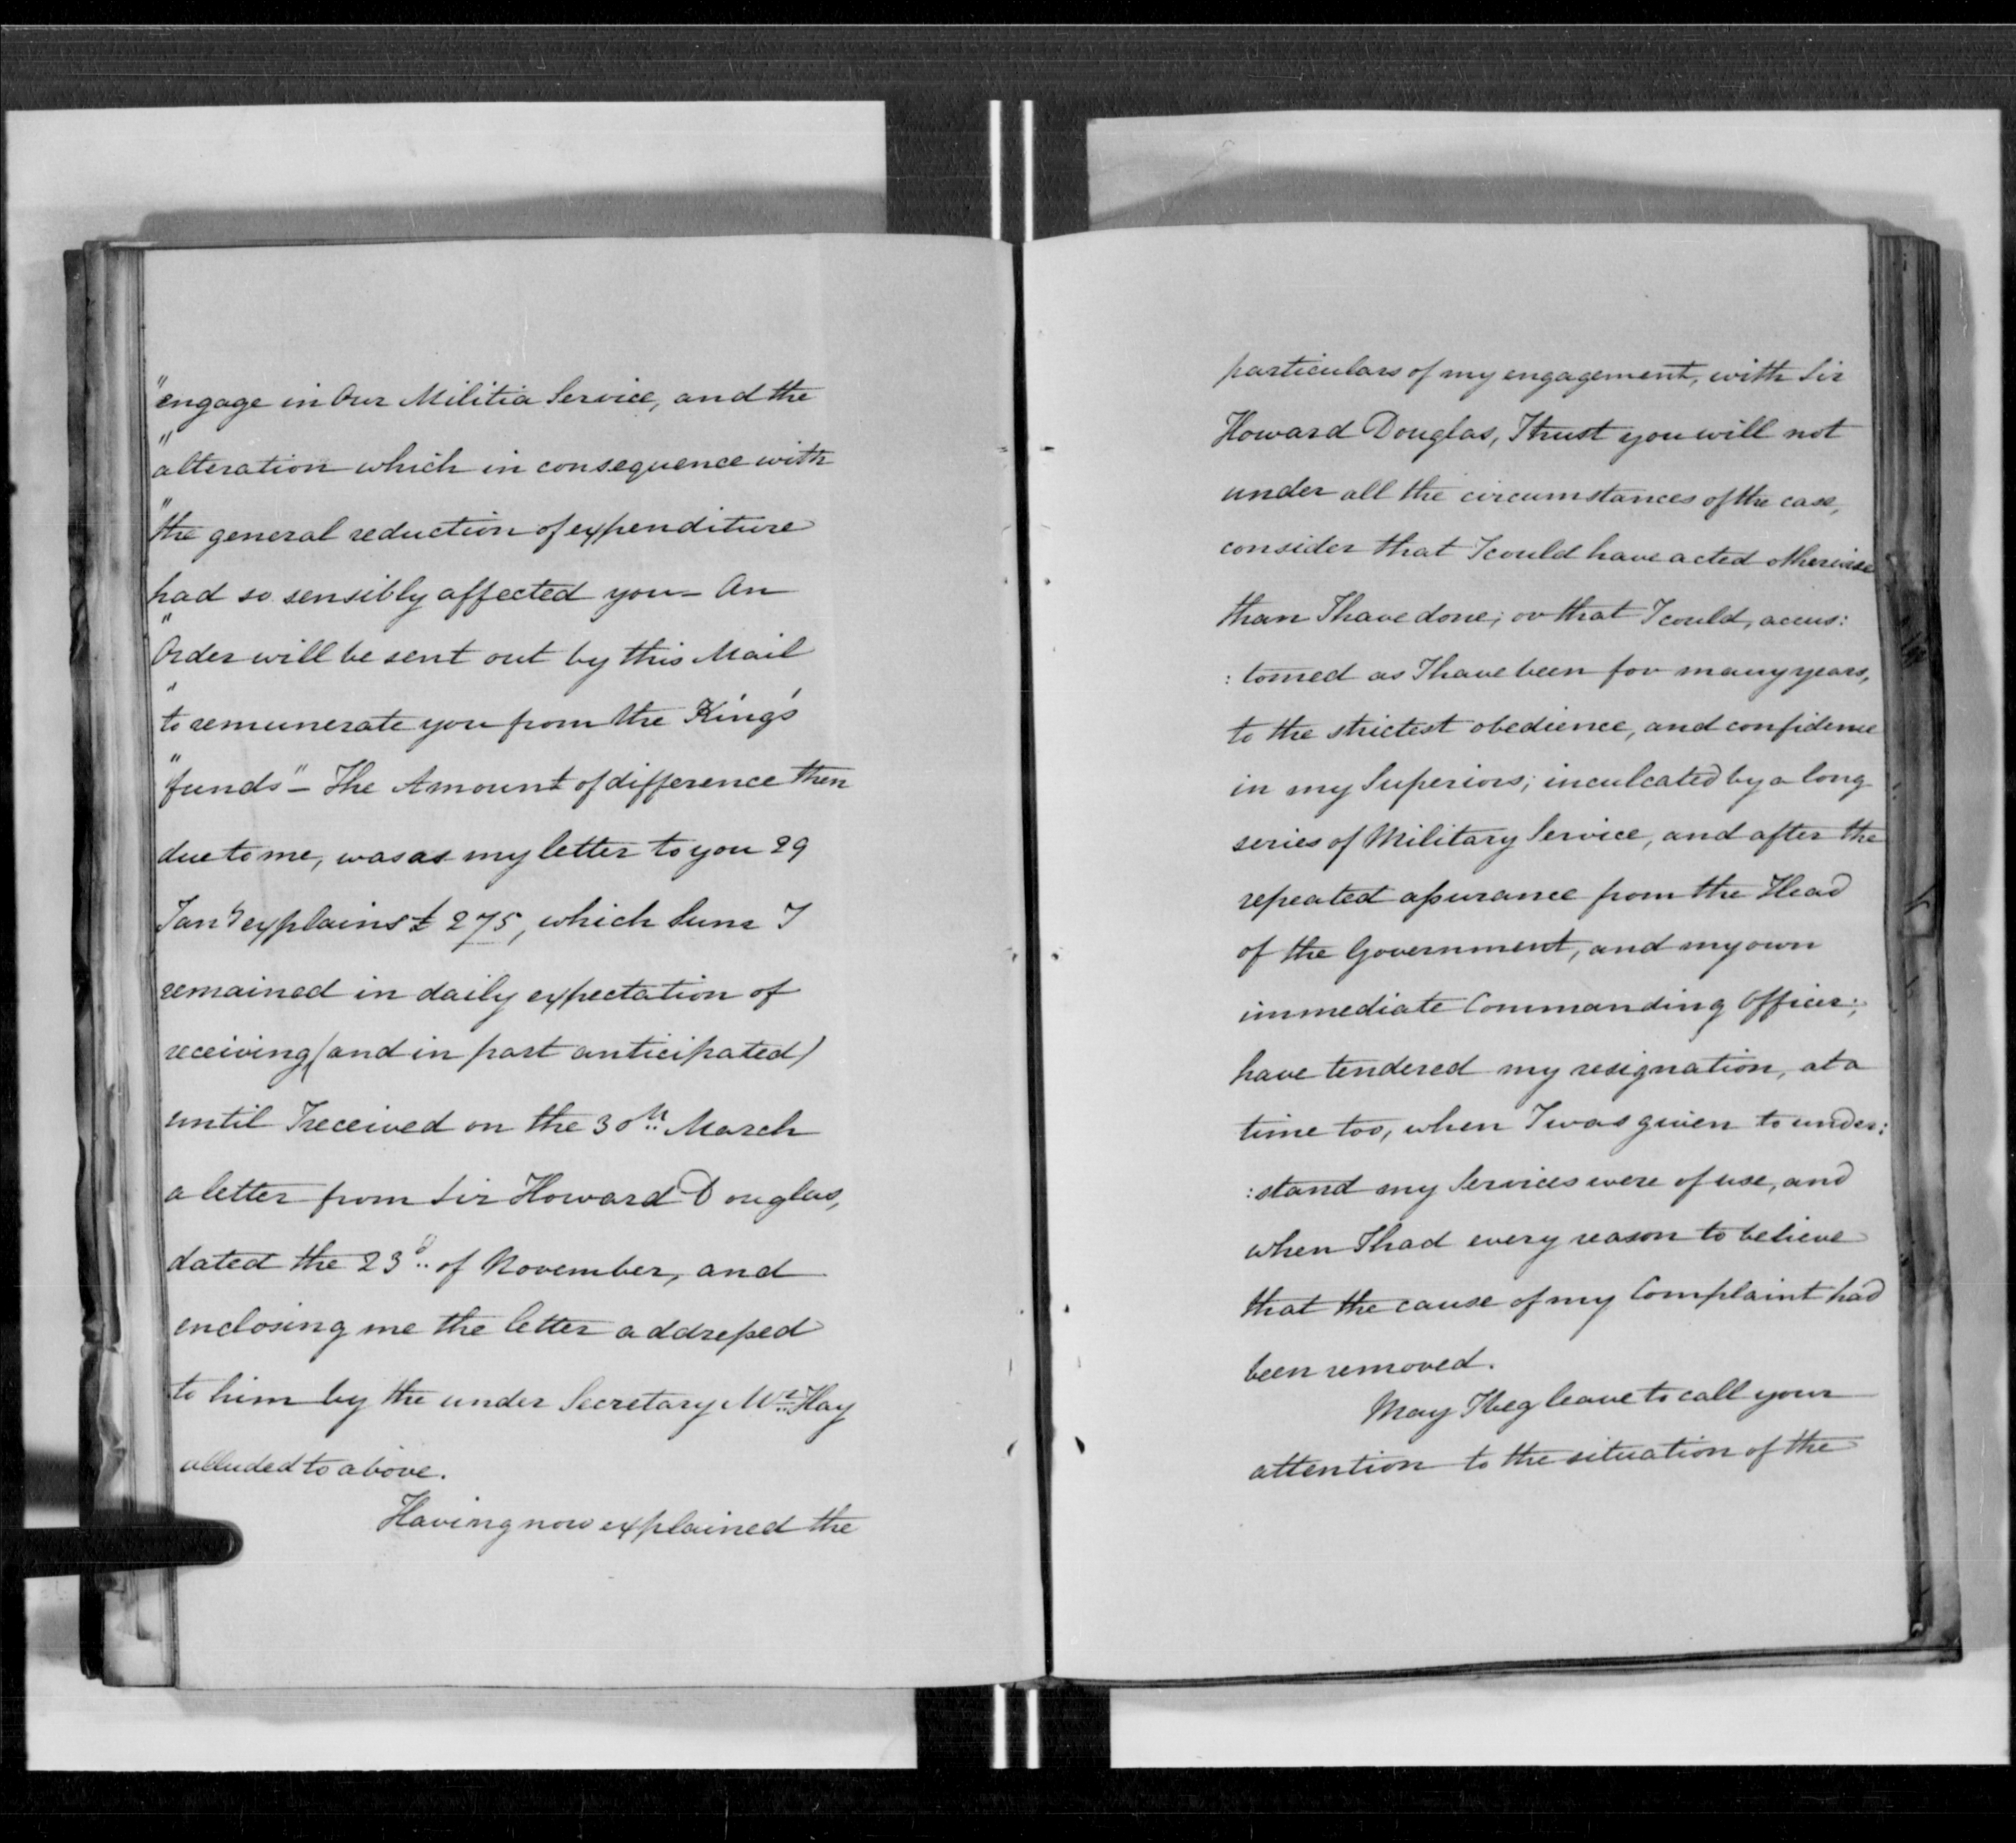 "engage in Our Militia Service, and the
"alteration which in consequence with
"the general reduction of expenditure
had so sensibly affected you - An
"Order will be sent out by this Mail
"to remunerate you from the King's
"funds" - The Amount of difference then
due to me, was as my letter to you 29
Jany explains £275, which Sum I
remained in daily expectation of
receiving (and in part anticipated)
until I received on the 30th March
a letter from Sir Howard Douglas,
dated the 23d of November, and
enclosing me the letter addressed
to him by the under Secretary Mr Hay
alluded to above.
Having now explained the
particulars of my engagement, with Sir
Howard Douglas, I trust you will not
under all the circumstances of the case,
consider that I could have acted otherwise
than I have done; or that I could, accus:
:tomed as I have been for many years,
to the strictest obedience, and confidence
in my Superiors; inculcated by a long
series of Military Service, and after the
repeated assurance from the Head
of the Government, and my own
immediate Commanding Officer;
have tendered my resignation, at a
time too, when I was given to under:
:stand my Services were of use, and
when I had every reason to believe
that the cause of my Complaint had
been removed.
May I beg leave to call your
attention to the situation of the